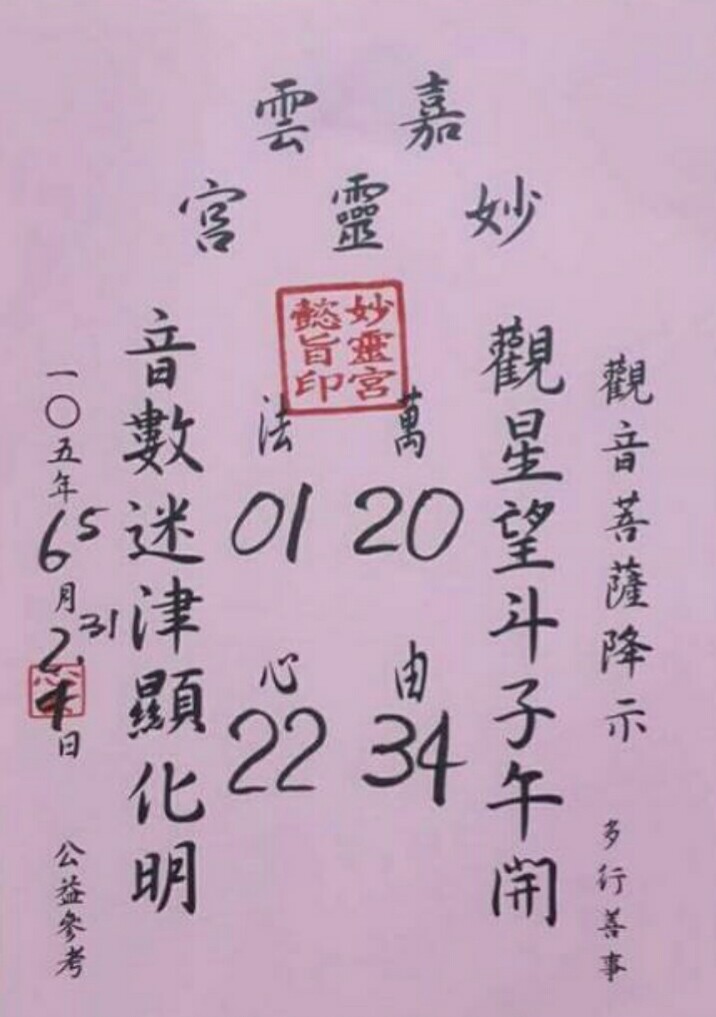 嘉雲
妙靈宮
觀音菩薩降示
多行善事
觀星望斗子午開
妙靈宮
懿旨印
萬法
20 01
由心
34 22
音數迷津顯化明
一〇五年65月31日
公益參考